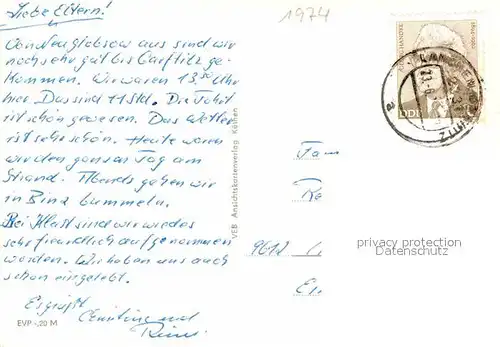 Liebe Eltern!
1974
Von Neuglobsow aus sind wir
noch sehr gut bis Carftitz ge-
kommen. Wir waren 13,50 Uhr
hier. Das sind 11 Std. Die Fahrt
ist schön gewesen. Das Wetter
ist sehr schön. Heute waren
wir den ganzen Tag am
Strand. Abends gehen wir
in Binz bummeln.
Bei Klast sind wir wieder
sehr freundlich aufgenommen
worden. Wir haben uns auch
schon eingelebt.
Es grüßt
Christine und
EVP -,20 M
VEB Ansichtskartenverlag Köthen
DDR
Fam
9612
privacy protection
Datenschutz